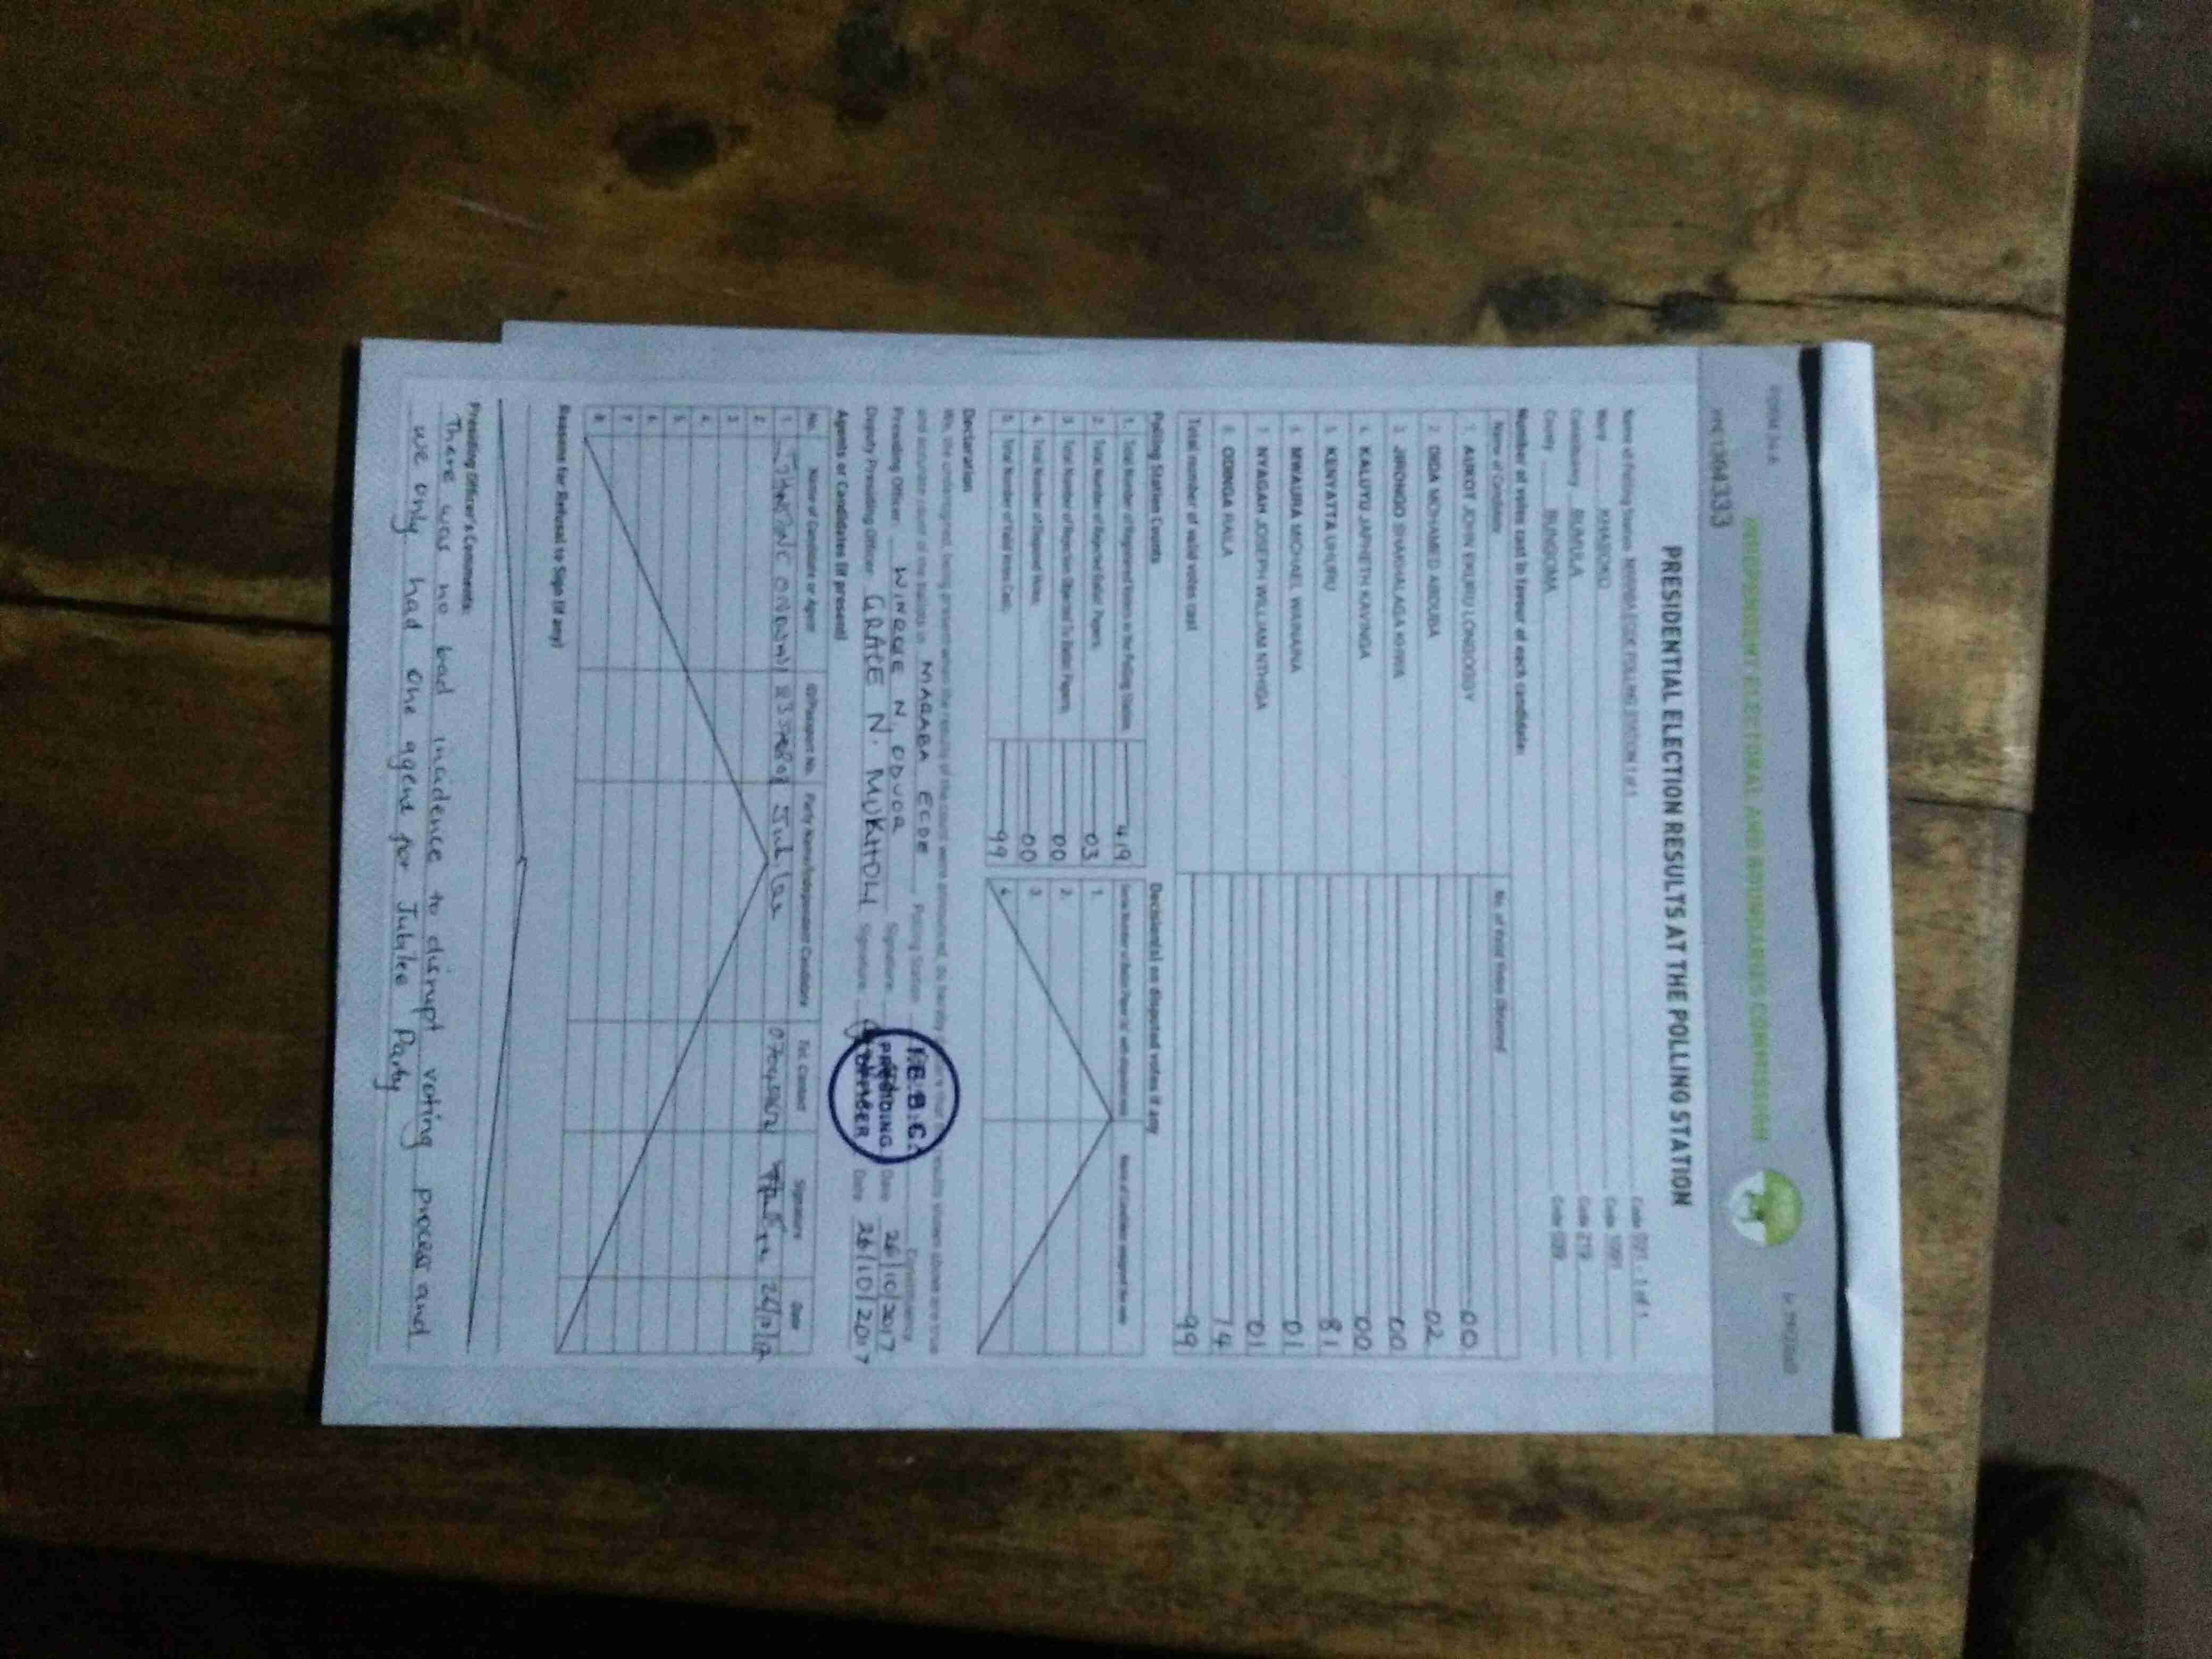 FORM 34A
INDEPENDENT ELECTORAL AND BOUNDARIES COMMISSION
PRESIDENTIAL ELECTION RESULTS AT THE POLLING STATION
Name of Polling Station POLLING STATION 1 of 1 Code 1 of 1
Ward KHASOKO Code
Constituency BUMULA Code 219
County BUNGOMA Code 039
Number of votes cast in favour of each candidate:
Name of Candidate No. of Valid Votes Obtained
1. AUKOT JOHN EKURU LONGOGGY 00
2. DIDA MOHAMED ABDUBA 02
3. JIRONGO SHAKHALAGA KHWA 00
4. KALUYU JAPHETH KAVINGA 00
5. KENYATTA UHURU 81
6. MWAURA MICHAEL WAINAINA 01
7. NYAGAH JOSEPH WILLIAM NTHIGA 01
8. ODINGA RAILA 14
Total number of valid votes cast 99
Polling Station Counts
1. Total Number of Registered Voters in the Polling Station 419
2. Total Number of Rejected Ballot Papers 03
3. Total Number of Rejection Objected To Ballot Papers 00
4. Total Number of Disputed Votes 00
5. Total Number of Valid Votes Cast 99
Decision(s) on disputed votes if any
1.
2.
3.
4.
Declaration
We, the undersigned, being present when the results of the count were announced, do hereby declare that the results shown above are true
and accurate count of the ballots in MARABA ECDE Polling Station Constituency
Presiding Officer WINQUE N. ODUOR Signature Date 26/10/2017
Deputy Presiding Officer GRACE N. MUKHOLI Signature Date 26/10/2017
I.E.B.C.
PRESIDING
OFFICER
Agents or Candidates (if present)
No. Name of Candidate or Agent ID/Passport No. Party Name/Independent Candidate Tel. Contact Signature Date
1. Jubilee 26/10/17
2.
3.
4.
5.
6.
7.
8.
Reasons for Refusal to Sign (if any)
Presiding Officer's Comments:
There was no bad incidence to disrupt voting process and
we only had one agent for Jubilee Party